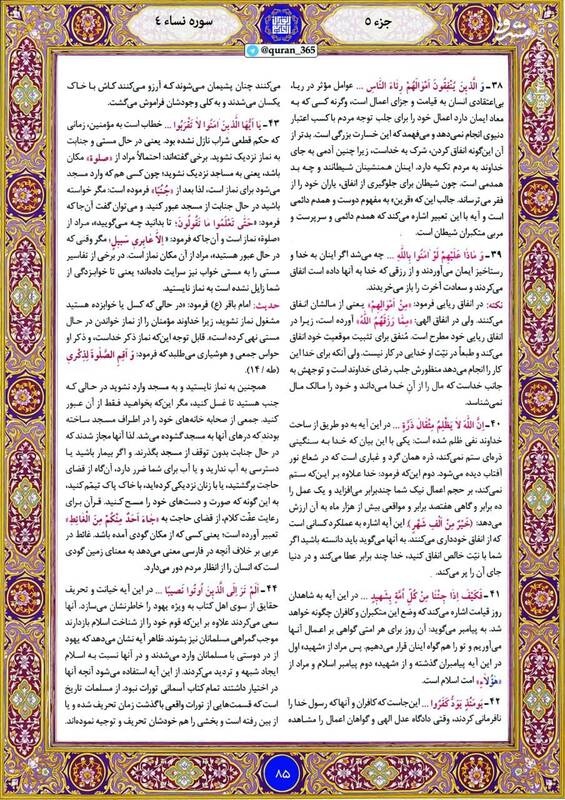 جزء ۵
سوره نساء ۴
@quran_365
۳۸- وَ الَّذِینَ یُنْفِقُونَ أَمْوَالَهُمْ رِئَاءَ النَّاسِ ... عوامل مؤثر در ریا،
بی‌اعتقادی انسان به قیامت و جزای اعمال است، وگرنه کسی که به
معاد ایمان دارد اعمال خود را برای جلب توجه مردم با کسب اعتبار
دنیوی انجام نمی‌دهد و می‌فهمد که این خسارت بزرگی است. بدتر از
آن این‌گونه انفاق کردن، شرک به خداست، زیرا چنین آدمی به جای
خداوند به مردم تکیه دارد. اینان همنشینان شیطانند و چه بد
همدمی است. جون شیطان برای جلوگیری از انفاق، یاران خود را از
فقر می‌ترساند. جالب این که «قرین» به مفهوم دوست و همدم دائمی
است و آیه با این تعبیر اشاره می‌کند که همدم دائمی و سرپرست و
مربی متکبران شیطان است.
۳۹- وَ مَاذَا عَلَیْهِمْ لَوْ آمَنُوا بِاللَّهِ ... چه می‌شد اگر اینان به خدا و
رستاخیز ایمان می‌آوردند و از رزقی که خدا به آنها داده است انفاق
می‌کردند و سعادت آخرت را باز می‌خریدند.
نکته: در انفاق ریایی فرمود: «مِنْ أَمْوَالِهِمْ» یعنی از مالشان انفاق
می‌کنند. ولی در انفاق الهی: «مِمَّا رَزَقَهُمُ اللَّهُ» آورده است، زیرا در
انفاق ریایی خود مطرح است. مُنفق برای تثبیت موقعیت خود انفاق
می‌کند و طبعاً در نیّت او خدایی در کار نیست. ولی آنکه برای خدا این
کار را انجام می‌دهد منظورش جلب رضای خداوند است و توجهش به
جانب خداست که مال را از آنِ خدا می‌داند و خود را مالک مال
نمی‌شناسد.
۴۰- إِنَّ اللَّهَ لَا یَظْلِمُ مِثْقَالَ ذَرَّةٍ ... در این آیه به دو طریق از ساحت
خداوند نفی ظلم شده است: یکی با این بیان که خدا به سنگینی
ذره‌ای ستم نمی‌کند، ذره همان گرد و غباری است که در شعاع نور
آفتاب دیده می‌شود. دوم این‌که فرمود: خدا علاوه بر این‌که ستم
نمی‌کند، بر حجم اعمال نیک شما چندبرابر می‌افزاید و یک عمل را
ده برابر و گاهی هفتصد برابر و مواقعی بیش از هزار ماه به آن ارزش
می‌دهد: (خَیْرٌ مِنْ أَلْفِ شَهْرٍ) این آیه اشاره به عملکرد کسانی است
که از انفاق خودداری می‌کنند. به آنها می‌گوید باید دانسته باشید اگر
شما با نیّت خالص انفاق کنید، خدا چند برابر عطا می‌کند و در دنیا
جای آن را پر می‌کند.
۴۱- فَكَیْفَ إِذَا جِئْنَا مِنْ كُلِّ أُمَّةٍ بِشَهِیدٍ ... در این آیه به شاهدان
روز قیامت اشاره می‌کند که وضع این متکبران و کافران چگونه خواهد
شد. به پیامبر می‌گوید: آن روز برای هر امتی گواهی بر اعمال آنها
می‌آوریم و تو را هم گواه اینان قرار می‌دهیم. پس مراد از «شهید» اول
در این آیه پیامبران گذشته و از «شهید» دوم پیامبر اسلام و مراد از
«هٰؤُلَاءِ» امت اسلام است.
۴۲- یَوْمَئِذٍ یَوَدُّ الَّذِینَ كَفَرُوا ... این‌جاست که کافران و آنها که رسول خدا را
نافرمانی کردند، وقتی دادگاه عدل الهی و گواهان اعمال را مشاهده
می‌کنند چنان پشیمان می‌شوند که آرزو می‌کنند کاش با خاک
یکسان می‌شدند و به کلی وجودشان فراموش می‌گشت.
۴۳- یَا أَیُّهَا الَّذِینَ آمَنُوا لَا تَقْرَبُوا ... خطاب است به مؤمنین، زمانی
که حکم قطعی شراب نازل نشده بود. یعنی در حال مستی و جنابت
به نماز نزدیک نشوید. برخی گفته‌اند: احتمالاً مراد از «صلوة» مکان
باشد، یعنی به مساجد نزدیک نشوید؛ چون کسی هم که وارد مسجد
می‌شود برای نماز است، لذا بعد از «جُنُبًا» فرموده است: مگر خواسته
باشید در حال جنابت از مسجد عبور کنید. و می‌توان گفت آن‌جا که
فرمود: «حَتَّى تَعْلَمُوا مَا تَقُولُونَ؛ تا بدانید چه می‌گویید»، مراد از
«صلوة» نماز است و آن‌جا که فرمود: «إِلَّا عَابِرِي سَبِیلٍ» مگر وقتی که
در حال عبور هستید»، مراد از آن مکان نماز است. در برخی از تفاسیر
مستی را به مستی خواب نیز سرایت داده‌اند؛ یعنی تا خوابزدگی از
شما زایل نشده است به نماز نایستید.
حدیث: امام باقر (ع) فرمود: «در حالی که کسل یا خوابزده هستید
مشغول نماز نشوید، زیرا خداوند مؤمنان را از نماز خواندن در حال
مستی نهی کرده است». قابل توجه این‌که نماز ذکر خداست، و ذکر او
حواس جمعی و هوشیاری می‌طلبد که فرمود: وَ أَقِمِ الصَّلٰوةَ لِذِكْرِي
(طه / ۱۴).
همچنین به نماز نایستید و به مسجد وارد نشوید در حالی که
جنب هستید تا غسل کنید، مگر این‌که بخواهید فقط از آن عبور
کنید. جمعی از صحابه خانه‌های خود را در اطراف مسجد ساخته
بودند که درهای آنها به مسجد گشوده می‌شد. لذا آنها مجاز شدند که
در حال جنابت بدون توقف از مسجد بگذرند. و اگر بیمار باشید یا
دسترسی به آب ندارید و یا آب برای شما ضرر دارد، آن‌گاه از قضای
حاجت برگشتید، یا با زنان نزدیکی کرده‌اید، با خاک پاک تیمّم کنید،
به این گونه که صورت و دست‌های خود را مسح کنید. قرآن برای
رعایت عفّت کلام، از قضای حاجت به «جَاءَ أَحَدٌ مِنْكُمْ مِنَ الْغَائِطِ»
تعبیر آورده است؛ یعنی کسی که از مکان گودی آمده باشد. غائط در
عربی بر خلاف آنچه در فارسی معنی می‌دهد به معنای زمین گودی
است که انسان را از انظار مردم دور می‌دارد.
۴۴- أَلَمْ تَرَ إِلَى الَّذِینَ أُوتُوا نَصِیبًا ... در این آیه خیانت و تحریف
حقایق از سوی اهل کتاب به ویژه یهود را خاطرنشان می‌سازد. آنها
سعی می‌کردند علاوه بر این‌که قوم خود را از شناخت اسلام بازدارند
موجب گمراهی مسلمانان نیز بشوند. ظاهر آیه نشان می‌دهد که یهود
از در دوستی با مسلمانان وارد می‌شدند و در آنها نسبت به اسلام
ایجاد شبهه و تردید می‌کردند. از این آیه استفاده می‌شود آنچه آنها
در اختیار داشتند تمام کتاب آسمانی تورات نبود. از مسلمات تاریخ
است که قسمت‌هایی از تورات واقعی با گذشت زمان تحریف شده و یا
از بین رفته است و بخشی را هم خودشان تحریف و توجیه نموده‌اند.
۸۵